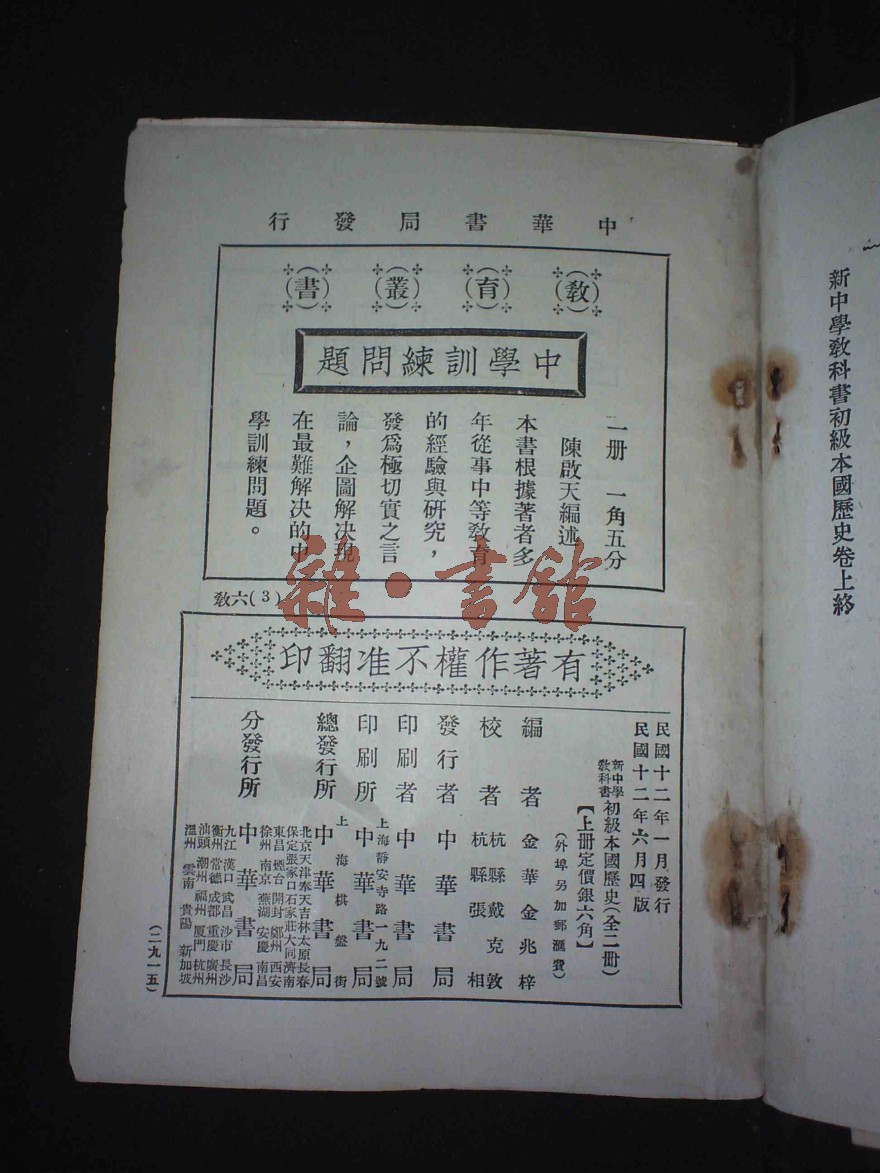 新中學教科書初級本國歷史卷上終
中華書局發行
教育叢書
中學訓練問題
一册 一角五分
陳啟天編述
本書根據著者多
年從事中等教育
的經驗與研究，
發爲極切實之言
論，企圖解决現
在最難解决的中
學訓練問題。
教六(3)
雜·書館
有著作權不准翻印
民國十二年一月發行
民國十二年六月四版
新中學教科書初級本國歷史(全二册)
【上册定價銀六角】
(外埠另加郵滙費)
編者 金華金兆梓
校者 杭縣戴克敦
杭縣張相
發行者 中華書局
印刷者 中華書局
上海靜安寺路一九二號
印刷所 中華書局
上海棋盤街
總發行所 中華書局
北京天津奉天吉林太原長春
保定張家口石家莊大同濟南
東昌煙台開封鄭州西安
徐州南京蕪湖安慶南昌
分發行所 中華書局
九江漢口武昌沙市長沙
衡州常德成都重慶廣州
汕頭潮州福州厦門杭州
溫州雲南貴陽新加坡
(二九一五)